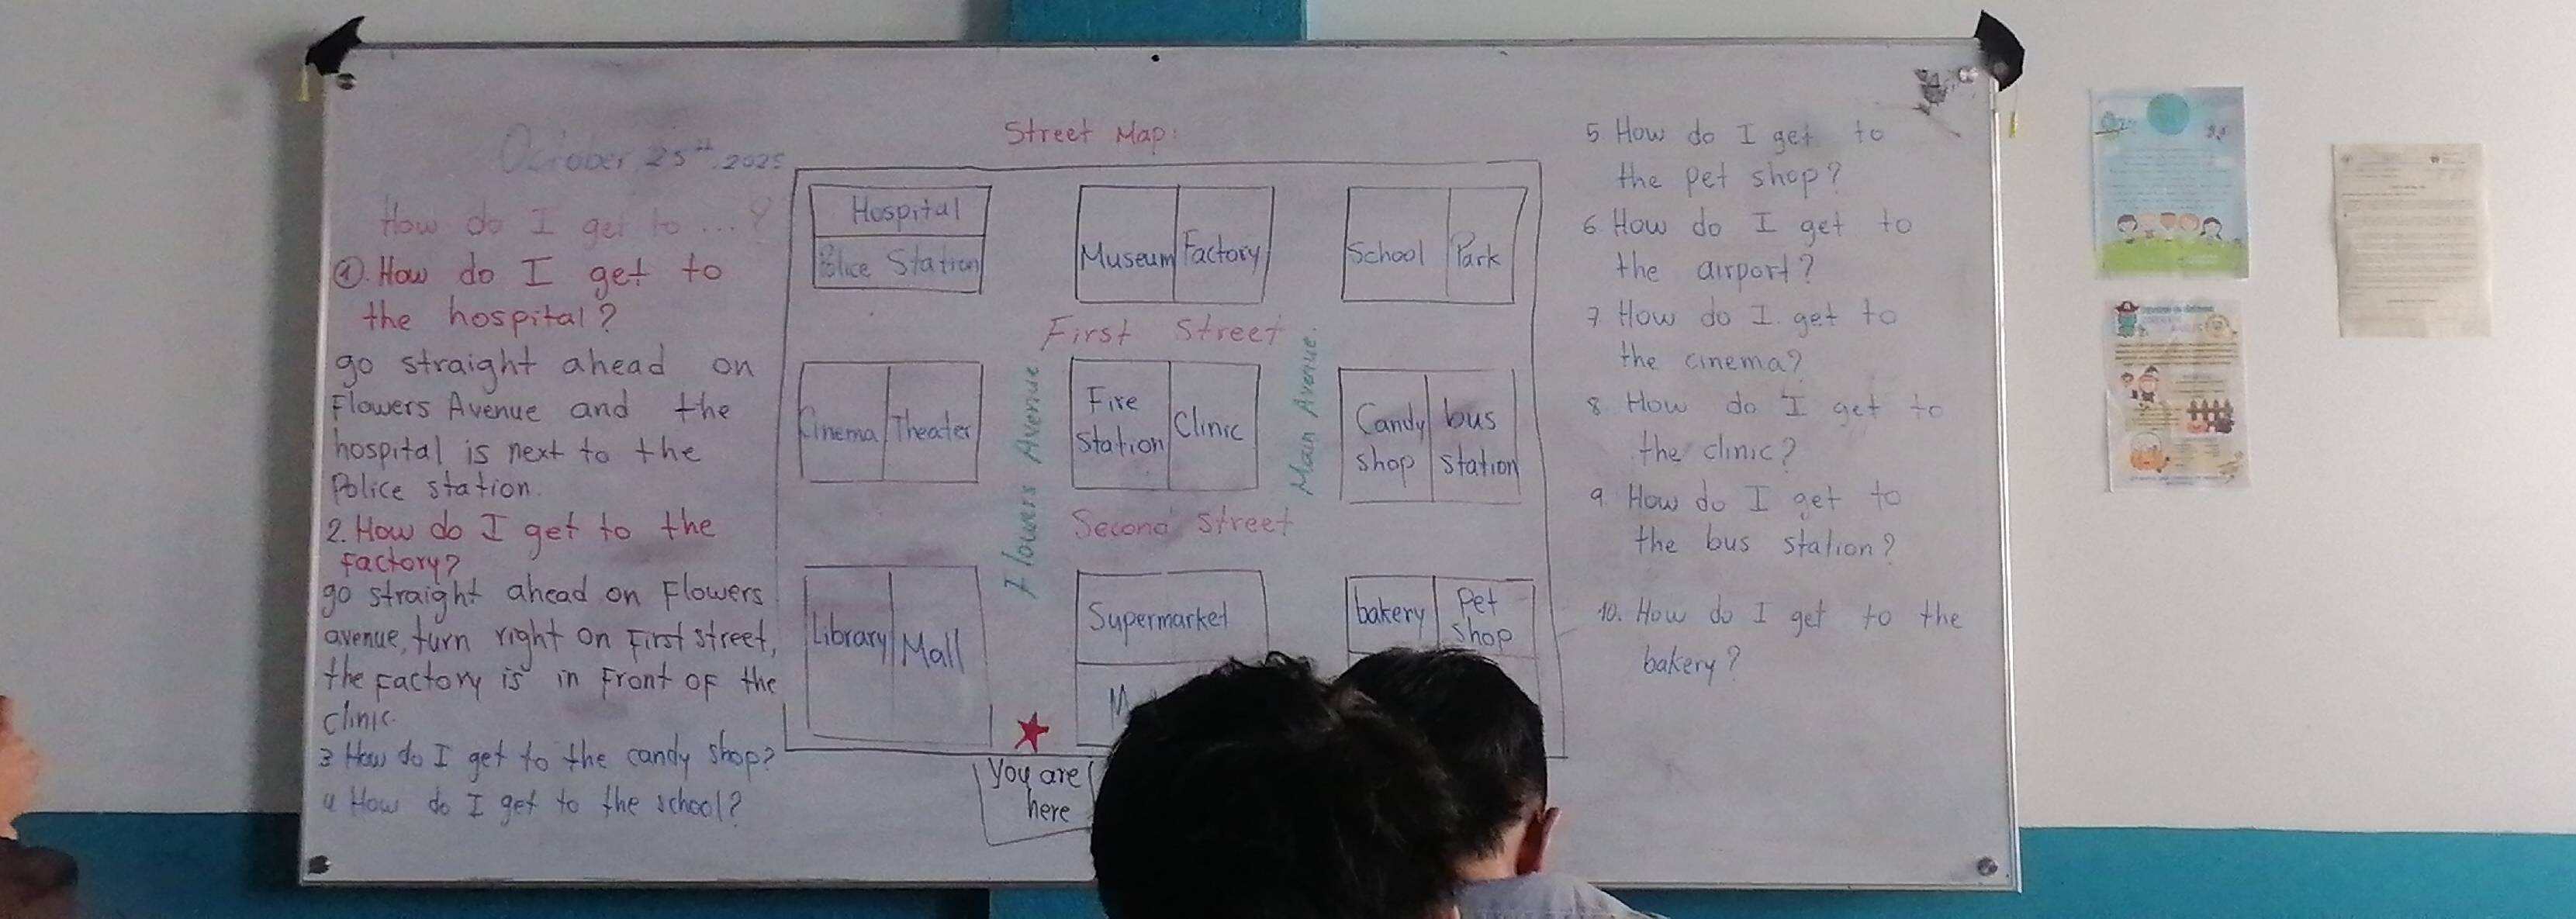 October, 25th, 2025
How do I get to ...?
1. How do I get to
the hospital?
go straight ahead on
Flowers Avenue and the
hospital is next to the
Police station.
2. How do I get to the
factory?
go straight ahead on Flowers
avenue, turn right on First street,
the factory is in front of the
clinic.
3 How do I get to the candy shop?
4 How do I get to the school?
Street Map:
Hospital
Police Station
Museum Factory
School Park
First Street
Cinema Theater
Flowers Avenue
Fire
Station
Clinic
Main Avenue.
Candy
shop
bus
station
Second street
Library Mall
Supermarket
bakery
Pet
shop
You are
here
5 How do I get to
the pet shop?
6 How do I get to
the airport?
7 How do I get to
the cinema?
8. How do I get to
the clinic?
9. How do I get to
the bus station?
10. How do I get to the
bakery?